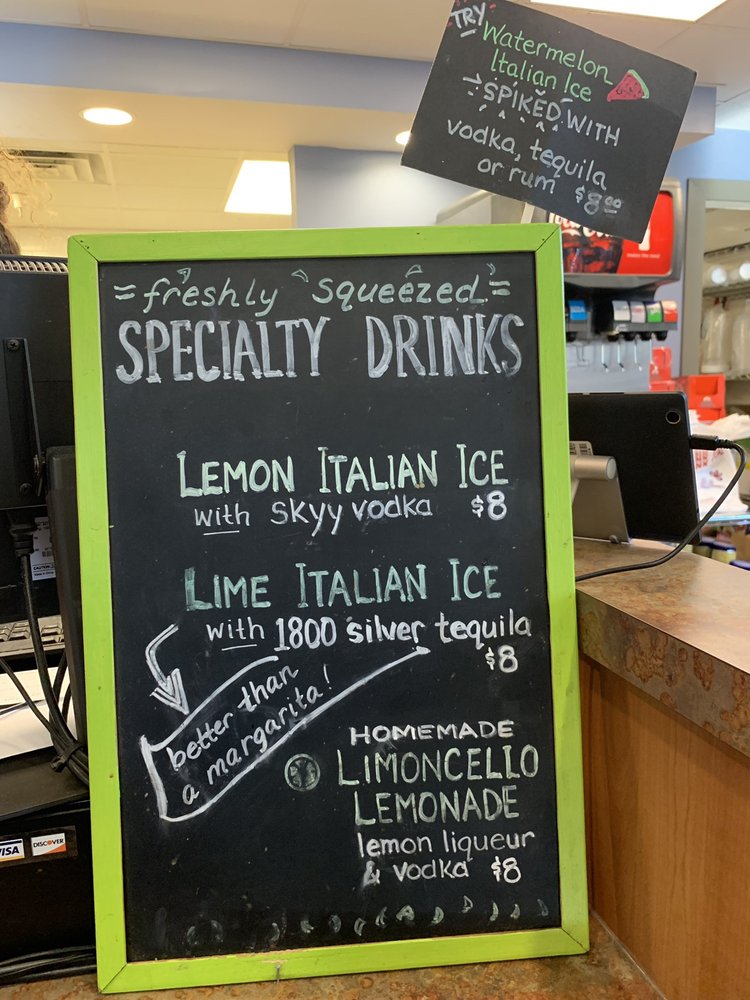 TRY
Watermelon
Italian Ice
SPIKED WITH
vodka, tequila
or rum $8.00
freshly squeezed
SPECIALTY DRINKS
LEMON ITALIAN ICE
with SKYY vodka $8
LIME ITALIAN ICE
with 1800 silver tequila
$8
better than
a margarita!
HOMEMADE
LIMONCELLO
LEMONADE
lemon liqueur
& vodka $8
VISA
DISCOVER